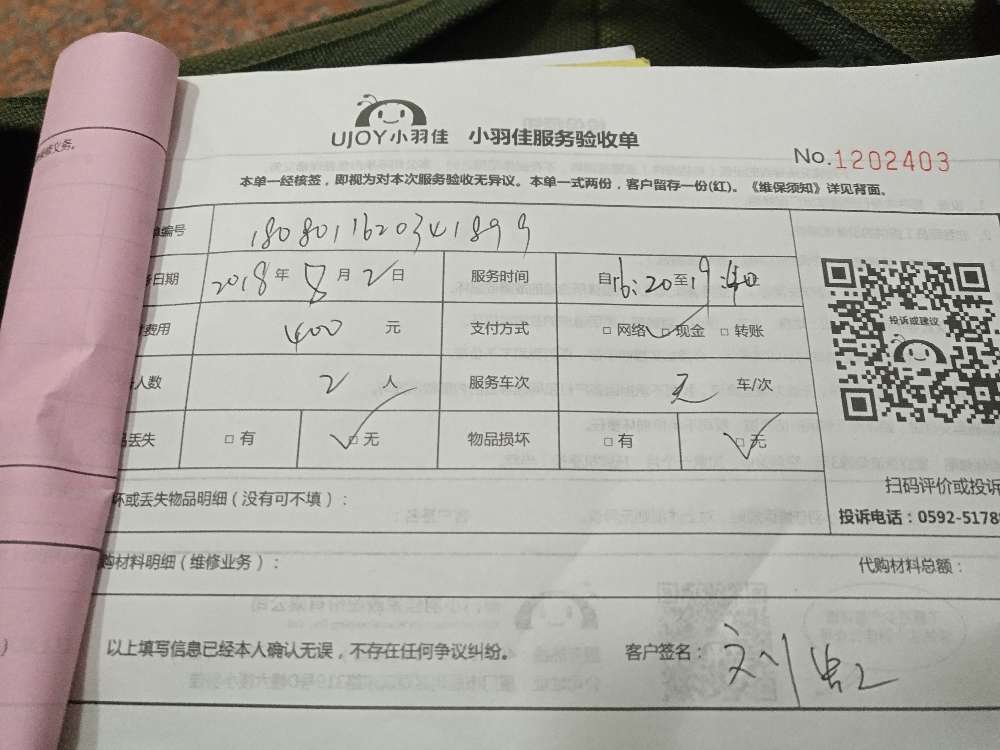 UJOY小羽佳 小羽佳服务验收单
No.1202403
本单一经核签，即视为对本次服务验收无异议。本单一式两份，客户留存一份(红)。《维保须知》详见背面。
编号 1808011620341899
日期 2018年8月2日 服务时间 自16:20至19:40
费用 400元 支付方式 □网络 □现金 □转账
人数 2人 服务车次 车/次
丢失 □有 □无 物品损坏 □有 □无
投诉或建议
坏或丢失物品明细（没有可不填）：
扫码评价或投诉
投诉电话：0592-5178
购材料明细（维修业务）： 代购材料总额：
以上填写信息已经本人确认无误，不存在任何争议纠纷。 客户签名：刘